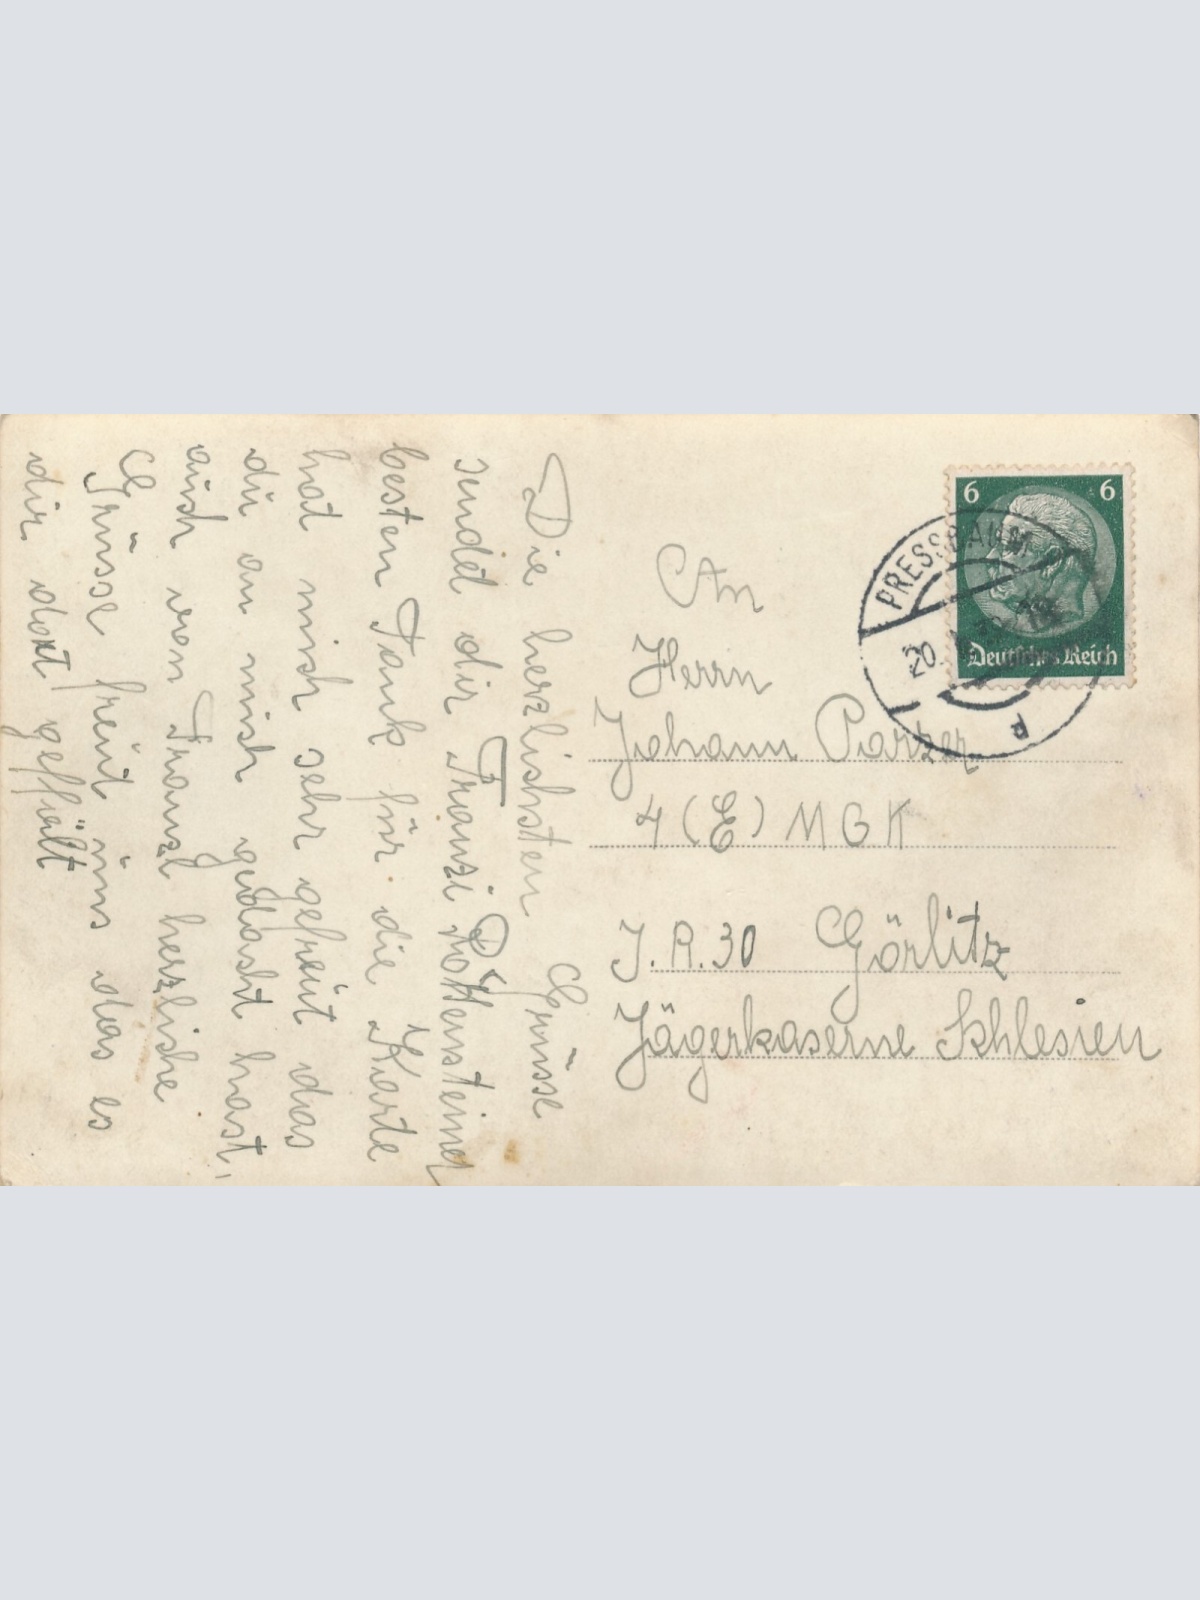 Die herzlichsten Grüsse
sendet dir Franzi Rottensteiner
besten Dank für die Karte
hat mich sehr gefreut das
du an mich gedacht hast,
auch von Franzl herzliche
Grüsse freut uns das es
dir dort geffält
An
Herrn
Johann Parzer
4 (E) MGK
J.R. 30 Görlitz
Jägerkaserne Schlesien
6 6
Deutsches Reich
PRESSBAUM
20.